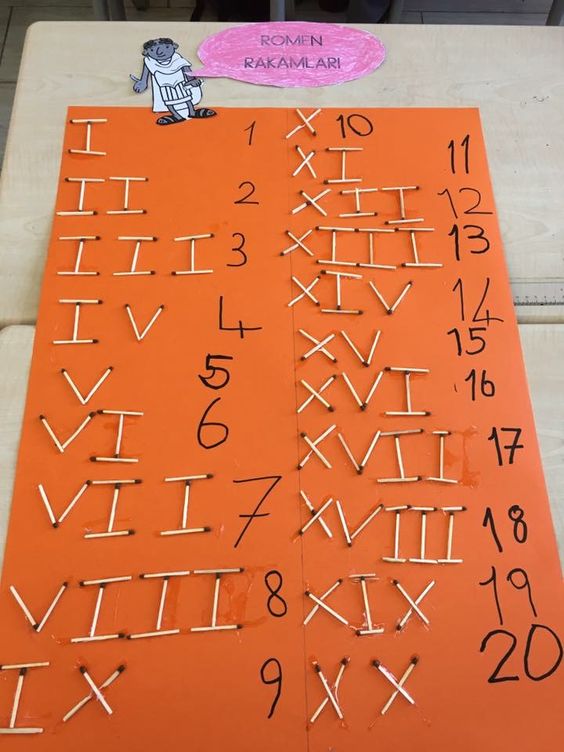 ROMEN
RAKAMLARI
I 1
II 2
III 3
IV 4
V 5
VI 6
VII 7
VIII 8
IX 9
X 10
XI 11
XII 12
XIII 13
XIV 14
XV 15
XVI 16
XVII 17
XVIII 18
XIX 19
XX 20